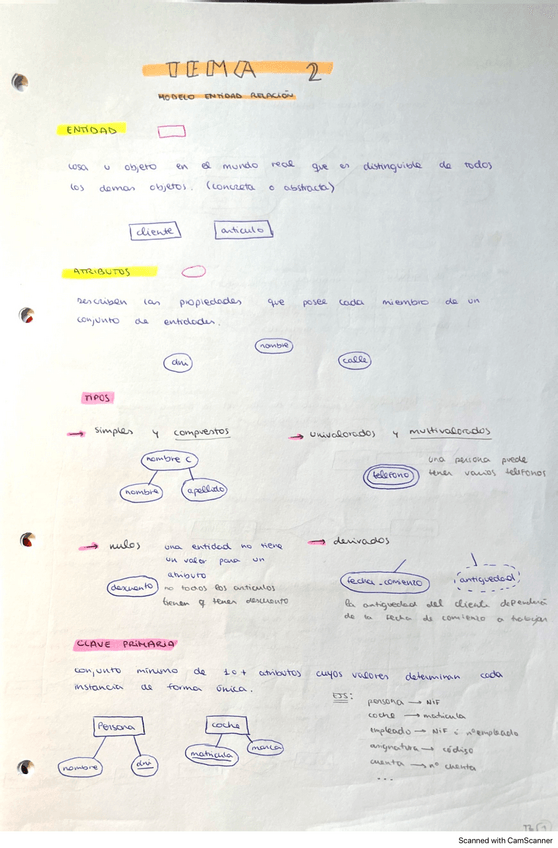 TEMA 2
MODELO ENTIDAD RELACIÓN
ENTIDAD
cosa u objeto en el mundo real que es distinguible de todos
los demas objetos. (concreta o abstracta)
cliente articulo
ATRIBUTOS
Describen las propiedades que posee cada miembro de un
conjunto de entidades.
nombre
dni calle
TIPOS
→ simples y compuestos → univalorados y multivalorados
nombre c
nombre apellido
telefono
una persona puede
tener varios telefonos
→ nulos
una entidad no tiene
un valor para un
atributo
descuento
no todos los articulos
tienen q tener descuento
→ derivados
fecha_comienzo antiguedad
la antiguedad del cliente dependerá
de la fecha de comienzo a trabajar
CLAVE PRIMARIA
conjunto minimo de 1 o + atributos cuyos valores determinan cada
instancia de forma única.
Persona
nombre dni
coche
matricula marca
EJS:
persona → NIF
coche → matricula
empleado → NIF o nº empleado
asignatura → código
cuenta → nº cuenta
...
Scanned with CamScanner